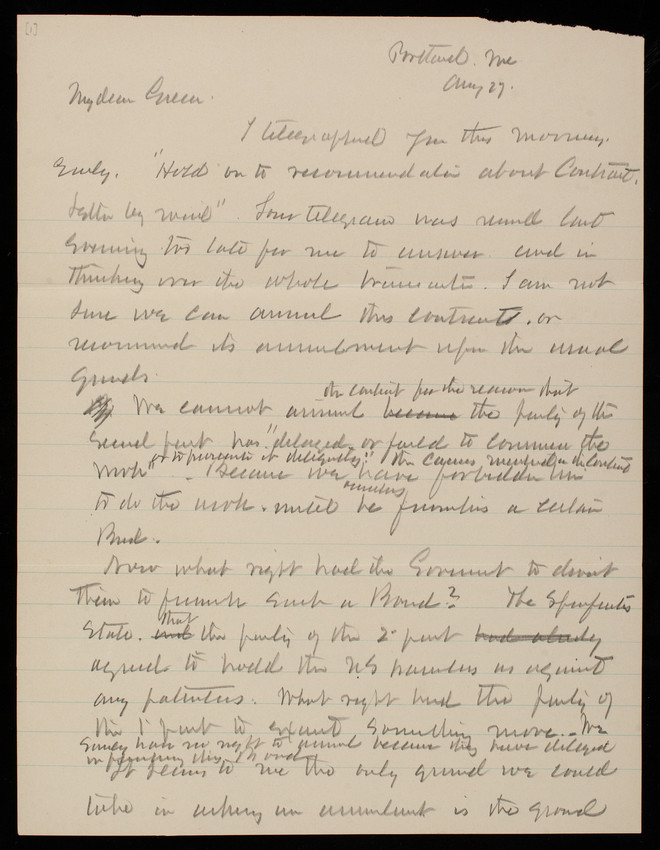 [1]
Portland. Me
Aug 27.
My dear Green.
I telegraphed you this morning.
Early. "Hold on to recommendation about Contract,
letter by mail". Your telegram was recvd last
Evening too late for me to answer. and in
thinking over the whole transaction. I am not
sure we can annul this contract, or
recommend its annulment upon the usual
grounds.
the contract for the reason that
We cannot annul because the party of the
second part has "delayed or failed to commence the
or to prosecute it diligently" the causes mentioned in the Contract
work" - because we have forbidden him
to do the work. until he furnishes a certain
Bond.
Now what right had the Government to direct
them to furnish such a Bond? The Specifications
that
State. and the party of the 2d part had already
agreed to hold the US harmless as against
any patentees. What right had the party of
the 1st part to exact something more. We
Surely have no right to annul because they have delayed
in furnishing this Bond
It seems to me the only ground we could
take in asking an annulment is the ground